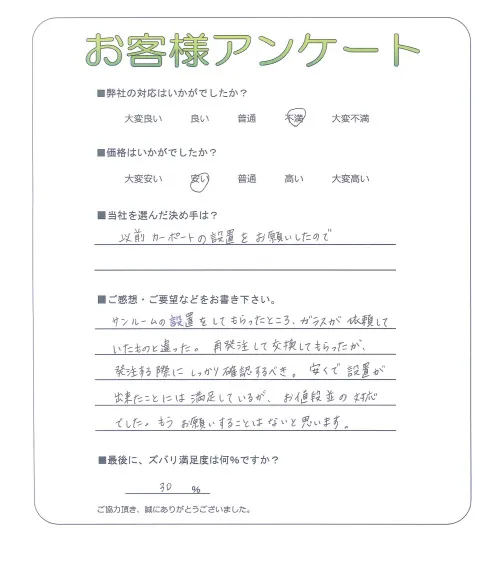 お客様アンケート
■弊社の対応はいかがでしたか？
大変良い　良い　普通　不満　大変不満
■価格はいかがでしたか？
大変安い　安い　普通　高い　大変高い
■当社を選んだ決め手は？
以前カーポートの設置をお願いしたので
■ご感想・ご要望などをお書き下さい。
サンルームの設置をしてもらったところ、ガラスが依頼して
いたものと違った。再発注して交換してもらったが、
発注する際にしっかり確認するべき。安くで設置が
出来たことには満足しているが、お値段並の対応
でした。もうお願いすることはないと思います。
■最後に、ズバリ満足度は何%ですか？
30 %
ご協力頂き、誠にありがとうございました。